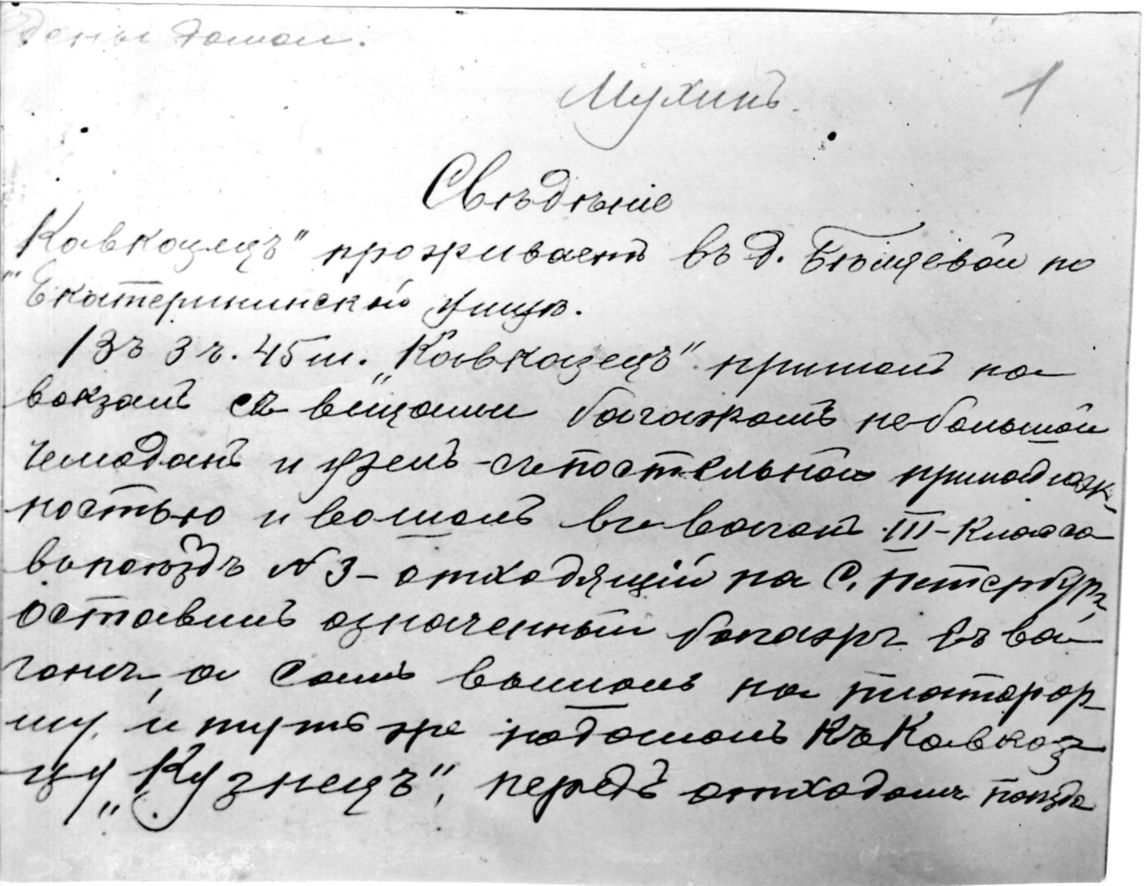 Мухинъ. 1
Свѣдѣніе
Кавказецъ" проживаетъ въ д. Бѣщевой по
"Екатерининской улицѣ.
Въ 3 ч. 45 м. „Кавказецъ" пришолъ на
вокзалъ съ вещами багажомъ небольшой
чемоданъ и узелъ-съ постельной принадлеж-
ностью и вошолъ въ вагонъ III-класса
въ поѣздъ № 3-отходящій на С. Петербургъ
оставилъ означенный багажъ въ ва
гонѣ, а самъ вышолъ на платфор-
му, и тутъ же подошолъ къ Кавказ-
цу „Кузнецъ", передъ отходомъ поѣзда